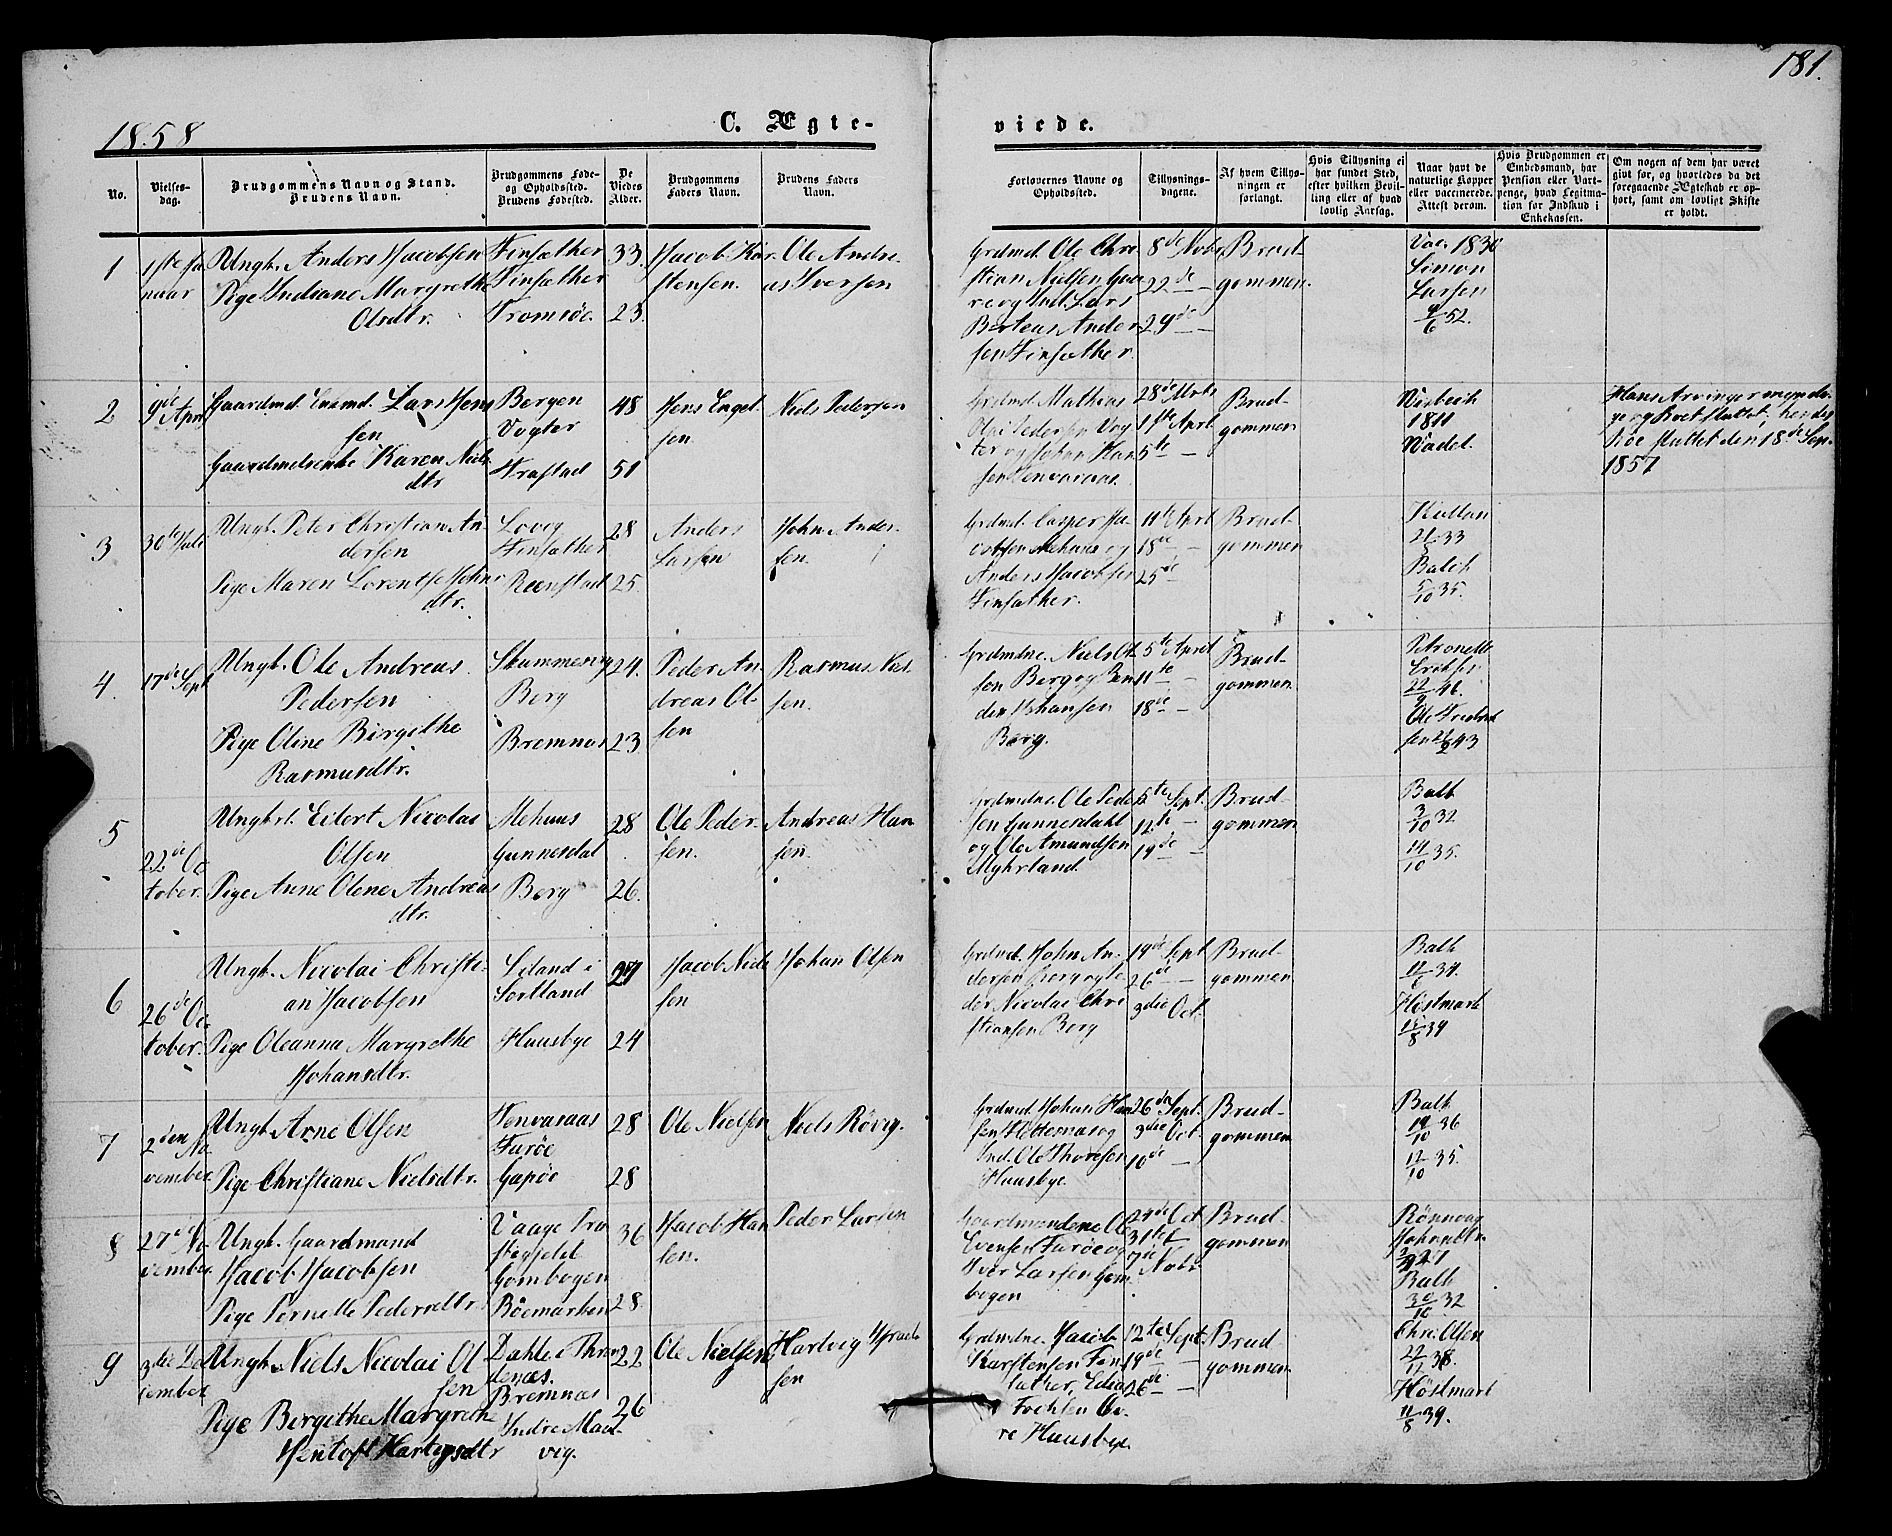 181.
1858
C. Ægte-
viede.
No.
Vielses-
dag.
Brudgommens Navn og Stand.
Brudens Navn.
Brudgommens Føde-
og Opholdssted.
Brudens Fødested.
De
Viedes
Alder.
Brudgommens
Faders Navn.
Brudens Faders
Navn.
Forlovernes Navne og
Opholdssted.
Tillysnings-
dagene.
Af hvem Tillys-
ningen er
forlangt.
Hvis Tillysning ei
har fundet Sted,
efter hvilken Bevil-
ling eller af hvad
lovlig Aarsag.
Naar havt de
naturlige Kopper
eller vaccinerede.
Attest derom.
Hvis Brudgommen er
Embedsmand, har
Pension eller Vart-
penge, hvad Legitima-
tion for Indskud i
Enkekassen.
Om nogen af dem har været
gift før, og hvorledes da det
foregaaende Ægteskab er op-
hørt, samt om lovligt Skifte
er holdt.
1
1ste Ja
nuar
Ungk. Anders Jacobsen
Pige Indiane Margrethe
Olsdtr.
Finsæther
Finsæther
Tromsöe
33
23
Jacob Kar
stensen.
Ole Andre
as Iversen
Grdmd. Ole Chri
stian Nielsen
Lars
Berteus Ander
sen Finsæther
8de Novbr
22de —
29de —
Brud-
gommen.
Vac. 1836
Simon
Larsen
9/6 52.
2
9de April
Gaardmd. Enkmd. Lars Jen
sen
Gaardmdsenke Karen Niels
dtr
Bergen
Vogter
Krastad
48
51
Jens Engel
sen
Niels Pedersen
Grdmd. Mathias
Pedersen Vog
ter og Johan Han
sen Tenvaraas.
28de Marts
1ste April
5te —
Brud-
gommen
1811
Wadel.
Hans Arvinger
ge og Boet sluttet; hendes
sluttet den 18de Sep.
1857
3
30te Juli
Ungk. Peter Christian An
dersen
Pige Maren Lorentse Johns
dtr.
Lovig
Finsæther
Reenstad
28
25
Anders
Larsen
John Ander
sen.
Grdmd. Casper Ja
cobsen Mehuus og
Anders Jacobsen
Finsæther.
11te April
18de —
25de
Brud-
gommen
33
Balch
5/10 35.
4.
17de Sept
Ungk. Ole Andreas
Pedersen
Pige Oline Birgithe
Rasmusdtr.
Skummenvig
Berg
Bremnæs
24
23
Peder An
dreas Ol
sen
Rasmus Niel
sen.
Grdmdne. Niels Ol
sen Berg og Ben
Johansen
Berg.
5te April
11te —
18de —
Brud-
gommen
Petronelle
Eriksen
22/9 46.
Ole Fredrik
sen 43
5
22de Oc
tober.
Ungkrl. Edert Nicolas
Olsen
Pige Anne Olene Andreas
dtr.
Mehuus
Gunnesdal
Berg
28
26.
Ole Peder
sen.
Andreas Han
sen
Grdmdne. Ole Peder
sen Gunnersdahl
og Ole Amundsen
Myhrland.
5te Sept.
12te —
19de —
Brud-
gommen
Balk
3/10 32
14/10 35.
6
26de Oc
tober.
Ungk. Nicolai Christi-
an Jacobsen
Pige Oleanna Margrethe
Johansdtr.
Leland i
Sortland
Huusbye
24
Jacob Niel
sen
Johan Olsen
Grdmd. John An-
dersen Berg og
Nicolai Chri
stiansen Berg
19de Sept
26de —
3die Oct.
Brud-
gommen
Balk
34.
Höstmark
11/8 39
7
2den No
vember
Ungk. Arne Olsen
Pige Christiane Nielsdtr.
Tenvaraas
Faröe
Gapöe
28
28
Ole Nielsen
Niels Rövig.
Grdmd. Johan Han
sen og
Ind. Ole Thoresen
Huusbye
26de Sept.
3die Oct.
10de —
Brud-
gommen
Balk
19/10 36
12/10 35.
8
27de No
vember
Ungk. Gaardmand
Jacob Jacobsen
Pige Pernelle Pedersdtr.
Vaage Præ
stegjeld
Gombogen
Röemarken
36
28
Jacob Han
sen.
Peder Larsen
Gaardmændene Ole
Evensen Faröe og
Iver Larsen Gom
bogen
24de Oct
31te
7de Novbr
Brud-
gommen
Rönnaug
Johansdtr.
27
Balk
30/10 32
9
3die De
cember
Ungk. Niels Nicolai Ol
sen
Pige Bergithe Margrethe
Jentoft Hartvigsdtr
Dahle i Thron
denæs.
Bremnæs
Indre Maal-
vig.
22
26
Ole Nielsen
Hartvig Israel
sen
Grdmdne. Jacob
Karstensen Fin
sæther,
Fochsen Öv
re Huusbye
12te Sept.
19de —
26de —
Brud
gommen
Chr. Olsen
22/12 38.
Höstmark
11/8 39.